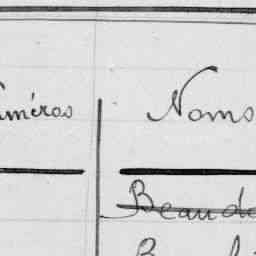 uméros Noms
Beaude